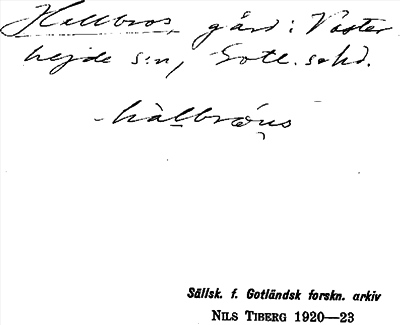 Hallbros, gård i Väster
hejde s:n, Gotl. sshd.
hàlbrǫ́ns
Sällsk. f. Gotländsk forskn. arkiv
NILS TIBERG 1920—23